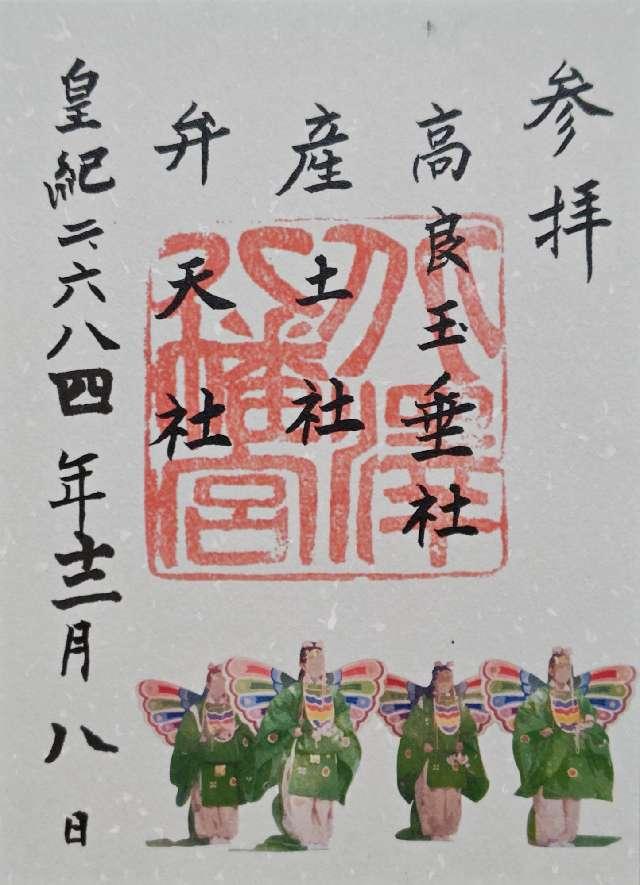 参拝
高良玉垂社
産土社
弁天社
皇紀二六八四年十二月八日